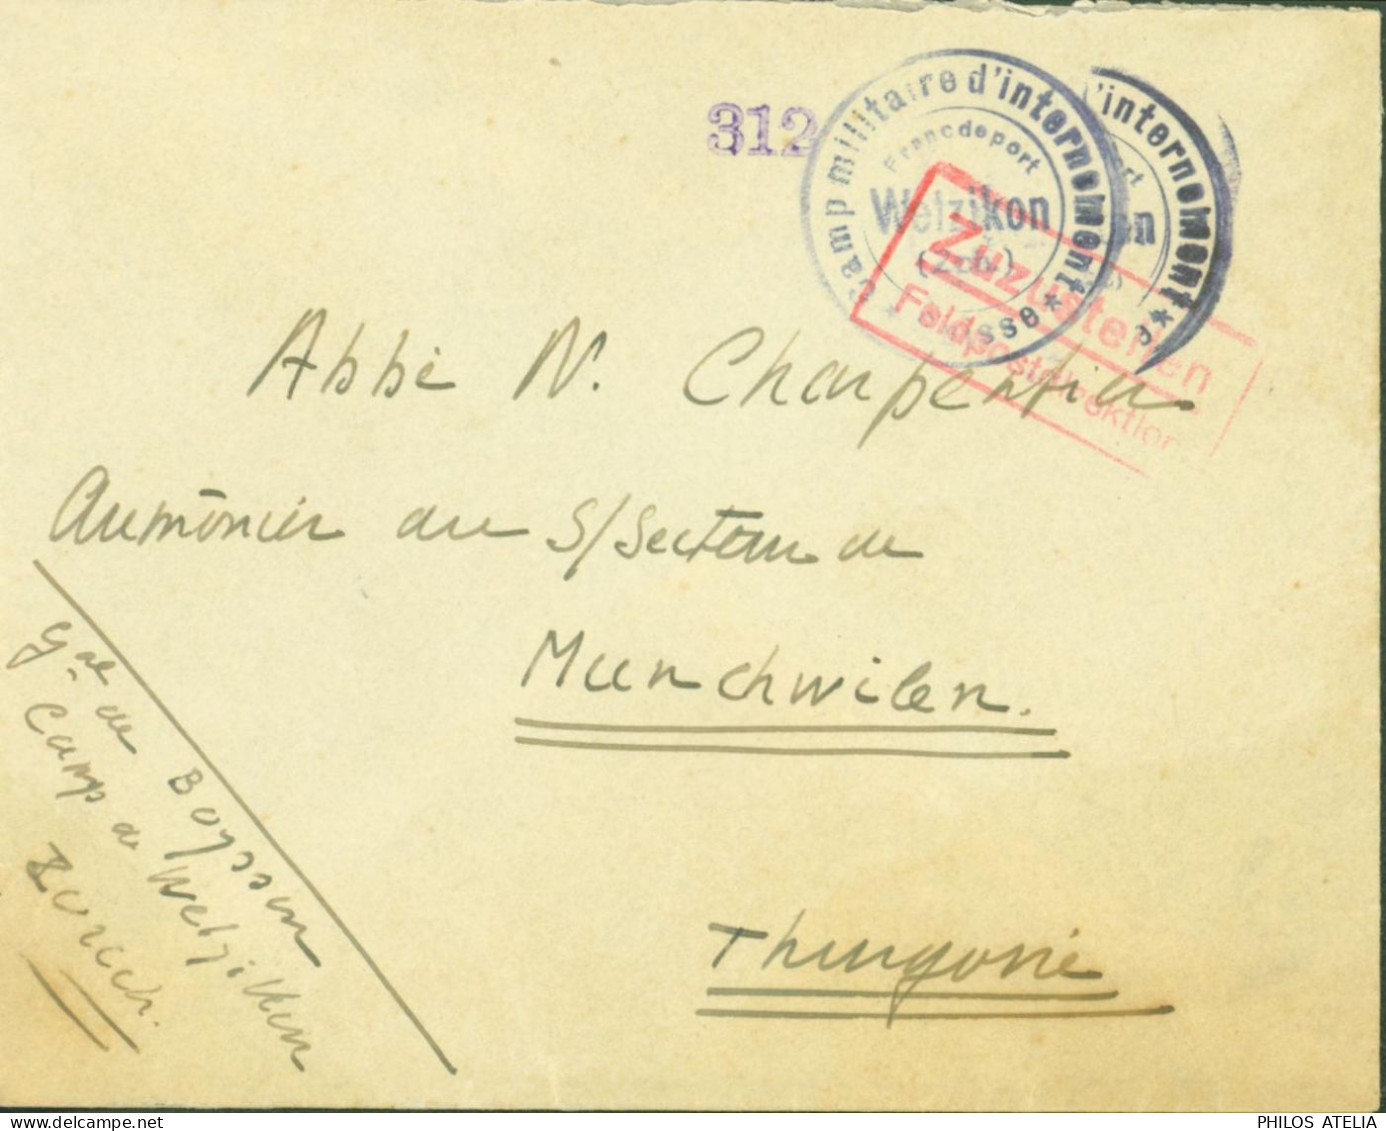 312
Camp militaire d'internement * Suisse *
Franc de port
Wetzikon
(Zch)
'internement *
Zuzustellen
Feldpostdirektion
Abbé N. Charpentier
Aumônier au S/Secteur de
Munchwilen.
Thurgovie
Gal de Boyssou
Camp de Wetzikon
Zurich.
PHILOS ATELIA